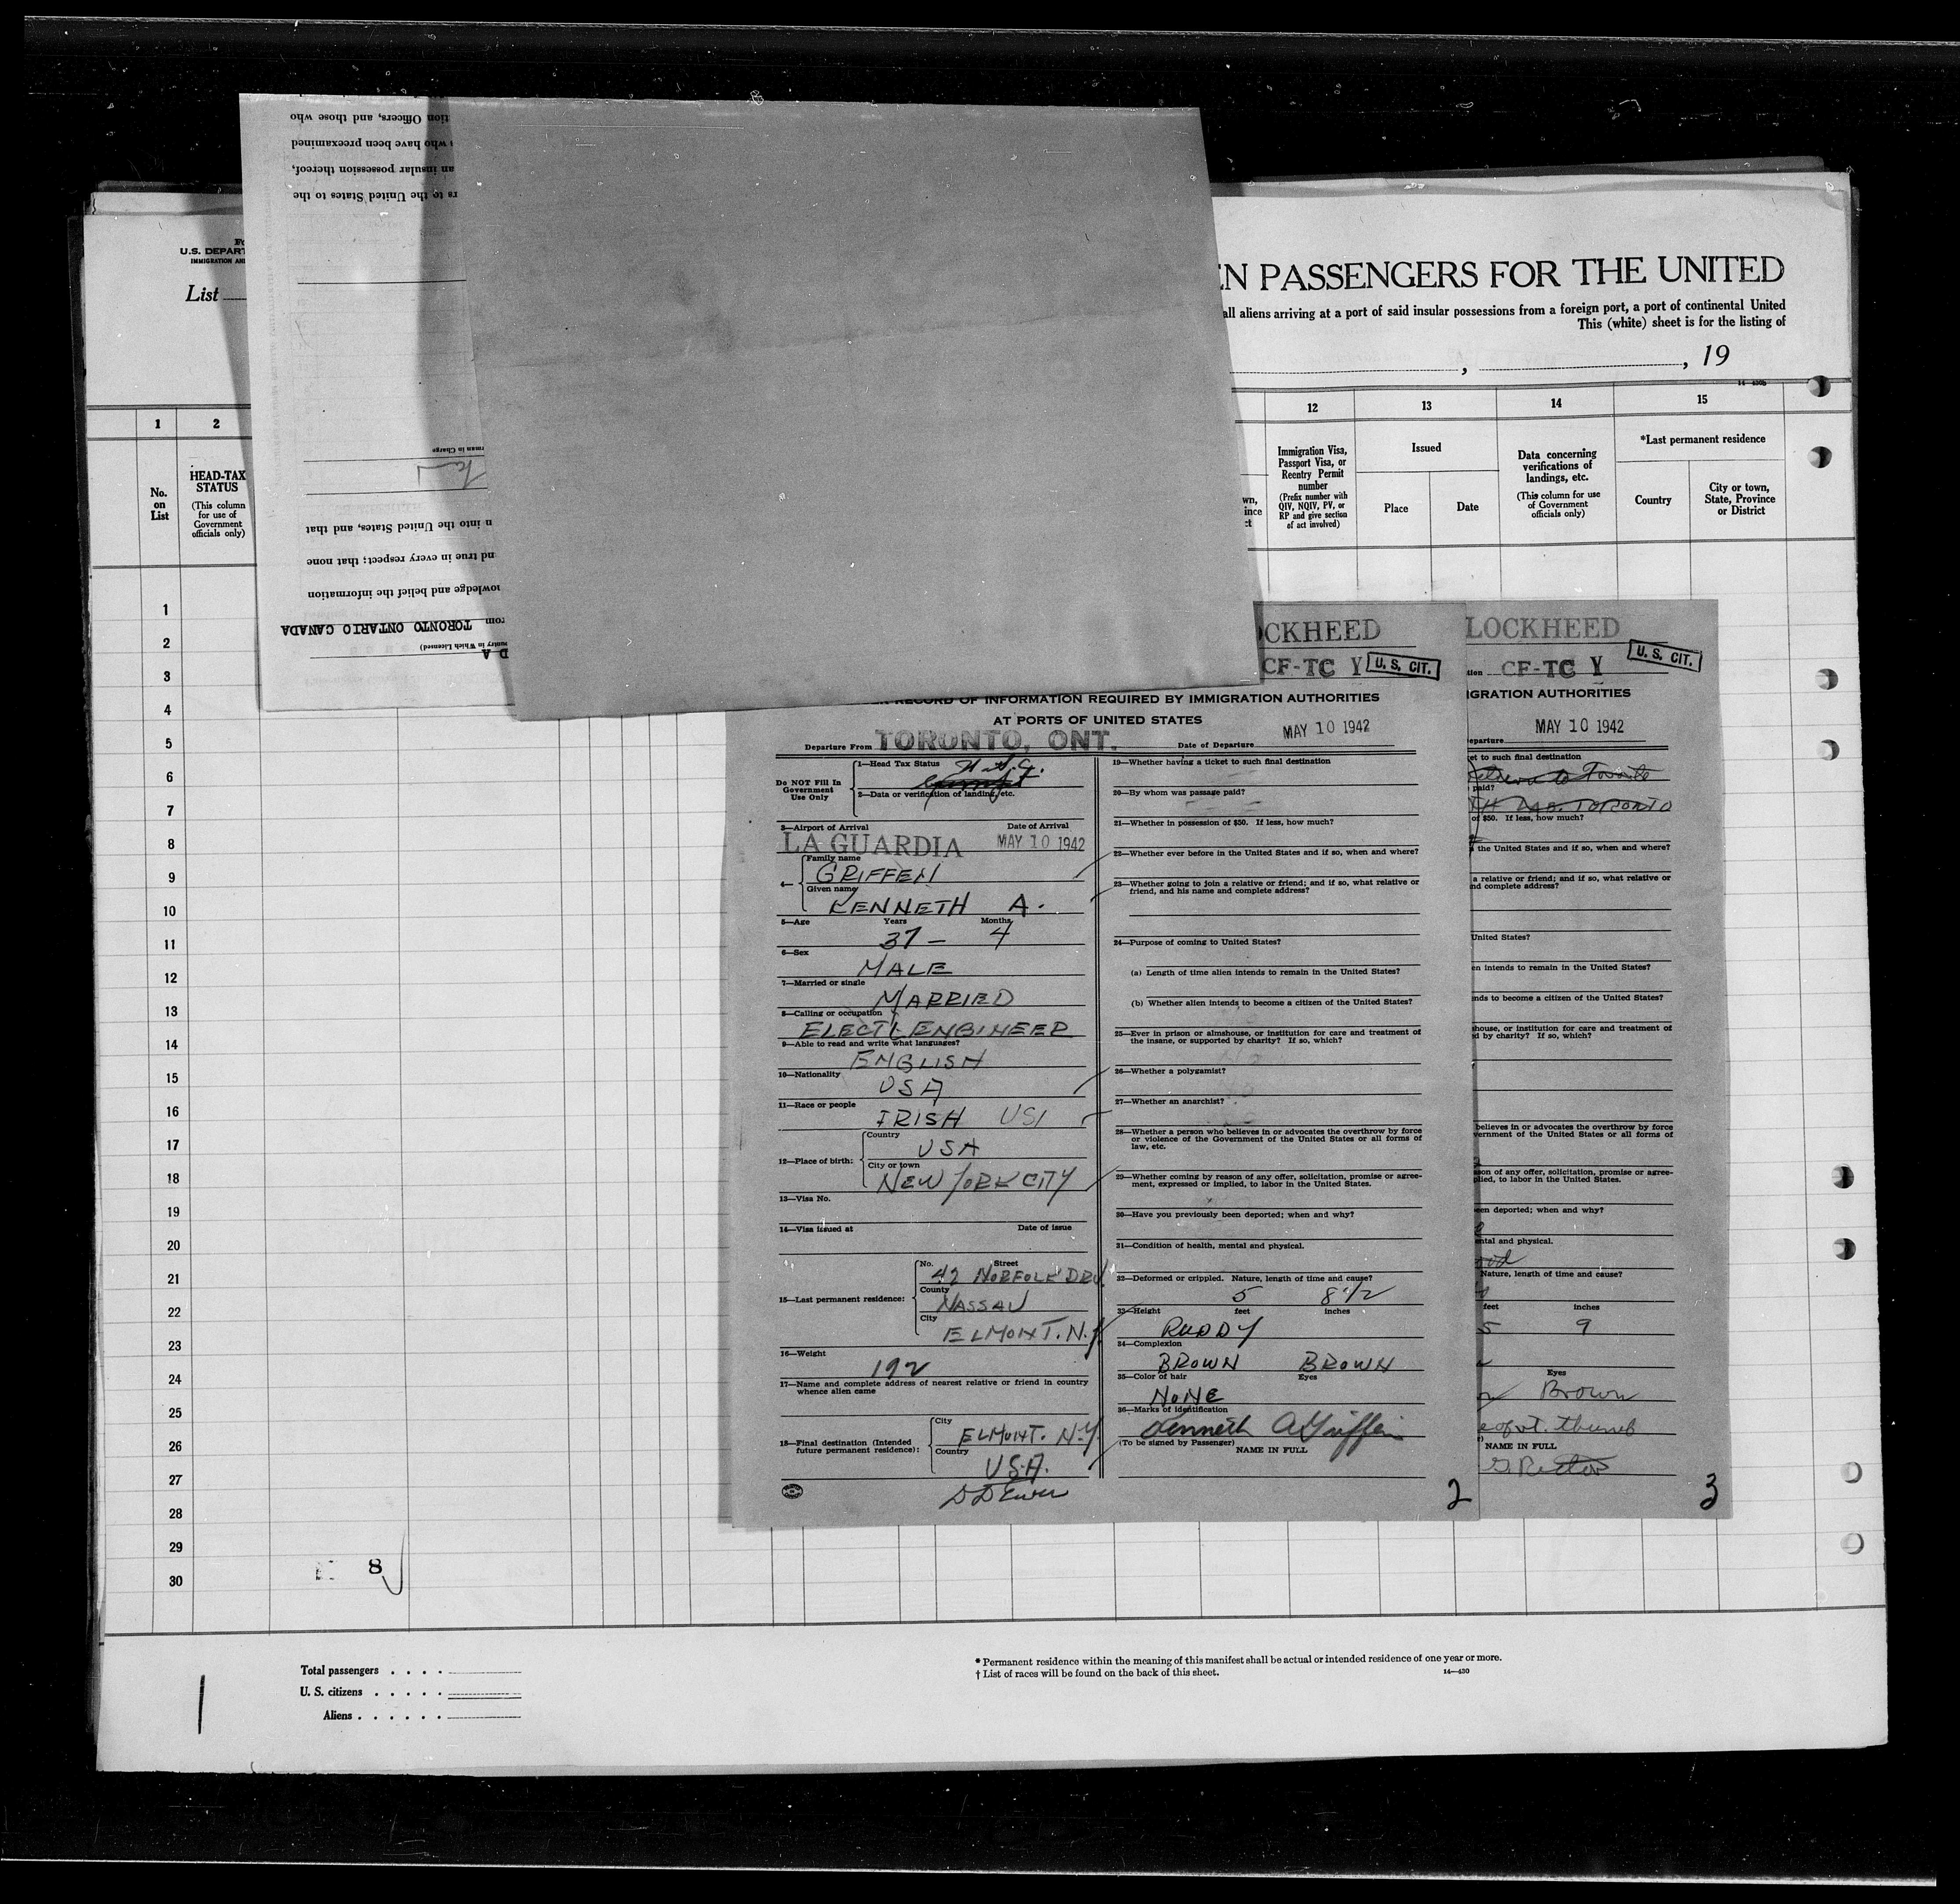 tion Officers, and those who
who have been preexamined
an insular possession thereof,
rs to the United States to the
rman in Charge
n into the United States, and that
nd true in every respect; that none
owledge and belief the information
rom TORONTO ONTARIO CANADA
untry in Which Licensed)
D A
U.S. DEPART
IMMIGRATION AND
List
EN PASSENGERS FOR THE UNITED
all aliens arriving at a port of said insular possessions from a foreign port, a port of continental United
This (white) sheet is for the listing of
, , 19
14—430b
1 2 12 13 14 15
No. on List
HEAD-TAX STATUS
(This column for use of Government officials only)
Immigration Visa, Passport Visa, or Reentry Permit number
(Prefix number with QIV, NQIV, PV, or RP and give section of act involved)
Issued
Place Date
Data concerning verifications of landings, etc.
(This column for use of Government officials only)
*Last permanent residence
Country
City or town, State, Province or District
1
2
3
4
5
6
7
8
9
10
11
12
13
14
15
16
17
18
19
20
21
22
23
24
25
26
27
28
29
30
8
OCKHEED
CF-TC Y U. S. CIT.
RECORD OF INFORMATION REQUIRED BY IMMIGRATION AUTHORITIES
AT PORTS OF UNITED STATES
Departure From TORONTO, ONT. Date of Departure MAY 10 1942
Do NOT Fill In Government Use Only
1—Head Tax Status
2—Data or verification of landing, etc.
3—Airport of Arrival Date of Arrival
LA GUARDIA MAY 10 1942
4—
Family name
GRIFFEN
Given name
KENNETH A.
5—Age Years Months
37 — 4
6—Sex
MALE
7—Married or single
MARRIED
8—Calling or occupation
ELECTL ENGINEER
9—Able to read and write what languages?
ENGLISH
10—Nationality
USA
11—Race or people
IRISH USI
12—Place of birth:
Country
USA
City or town
NEW YORK CITY
13—Visa No.
14—Visa issued at Date of issue
15—Last permanent residence:
No. Street
42 NORFOLK DRV
County
NASSAU
City
ELMONT. N.Y.
16—Weight
192
17—Name and complete address of nearest relative or friend in country whence alien came
18—Final destination (Intended future permanent residence):
City
ELMONT. N.Y.
Country
U.S.A.
19—Whether having a ticket to such final destination
20—By whom was passage paid?
21—Whether in possession of $50. If less, how much?
22—Whether ever before in the United States and if so, when and where?
23—Whether going to join a relative or friend; and if so, what relative or
friend, and his name and complete address?
24—Purpose of coming to United States?
(a) Length of time alien intends to remain in the United States?
(b) Whether alien intends to become a citizen of the United States?
25—Ever in prison or almshouse, or institution for care and treatment of
the insane, or supported by charity? If so, which?
26—Whether a polygamist?
27—Whether an anarchist?
28—Whether a person who believes in or advocates the overthrow by force
or violence of the Government of the United States or all forms of
law, etc.
29—Whether coming by reason of any offer, solicitation, promise or agree-
ment, expressed or implied, to labor in the United States.
30—Have you previously been deported; when and why?
31—Condition of health, mental and physical.
32—Deformed or crippled. Nature, length of time and cause?
5 8 1/2
33—Height feet inches
RUDDY
34—Complexion
BROWN BROWN
35—Color of hair Eyes
NONE
36—Marks of identification
Kenneth A Griffen
(To be signed by Passenger) NAME IN FULL
2
LOCKHEED
tion CF-TC Y U. S. CIT.
IGRATION AUTHORITIES
eparture MAY 10 1942
et to such final destination
Return to Toronto
paid?
TORONTO
of $50. If less, how much?
the United States and if so, when and where?
a relative or friend; and if so, what relative or
nd complete address?
United States?
en intends to remain in the United States?
nds to become a citizen of the United States?
shouse, or institution for care and treatment of
d by charity? If so, which?
believes in or advocates the overthrow by force
vernment of the United States or all forms of
son of any offer, solicitation, promise or agree-
plied, to labor in the United States.
een deported; when and why?
ental and physical.
ood
Nature, length of time and cause?
feet inches
5 9
Eyes
Brown
thumb
NAME IN FULL
3
Total passengers
U. S. citizens
Aliens
* Permanent residence within the meaning of this manifest shall be actual or intended residence of one year or more.
† List of races will be found on the back of this sheet.
14—430